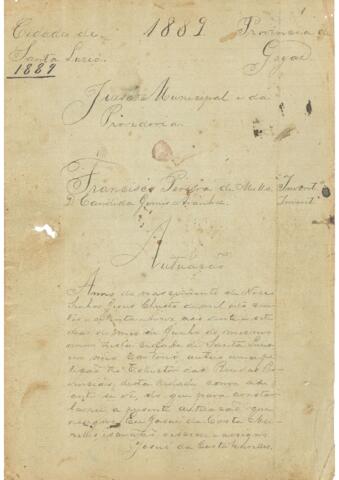 Cidade de
Santa Luzia.
1889
1889
Provincia de
Goyaz
Juizo Municipal e da
Provedoria.
Francisco Pereira de Mello Invent.
D. Candida Gomes Invent.
Autuação
Anno do nascimento de Nosso
Senhor Jesus Christo de mil oito centos
e oitenta e nove aos vinte e sete
dias do mez de Junho do mesmo
anno nesta cidade de Santa Luzia
em meu Cartorio autuo uma pe
tição do Collector das Rendas Pro
vinciaes, desta cidade como adi
ante se vê, do que para constar
lavrei a presente autuação que
assigno. Eu José da Costa
escrivão escrevi e assigno.
José da Costa